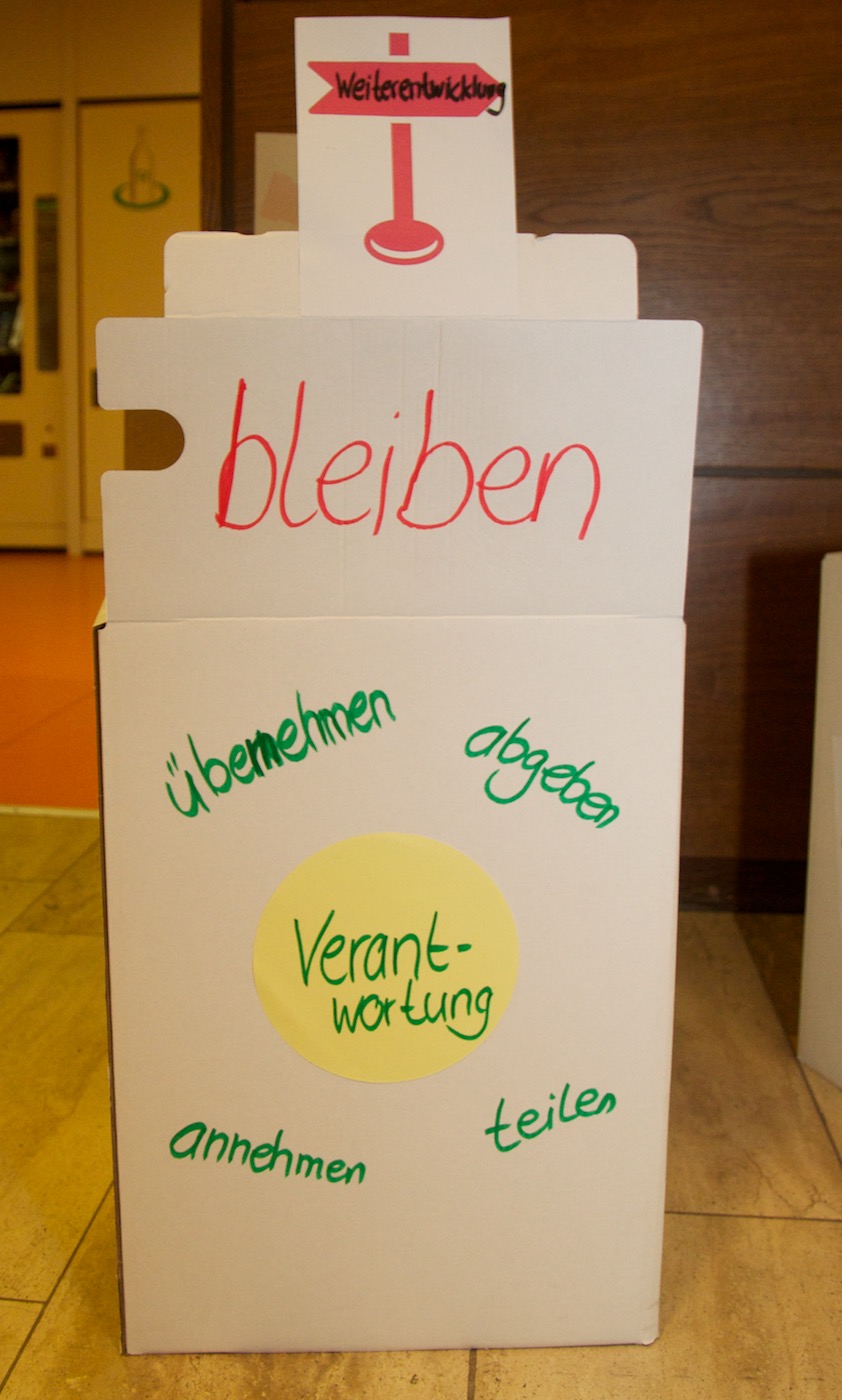 Weiterentwicklung
bleiben
übernehmen
abgeben
Verant-
wortung
annehmen
teilen